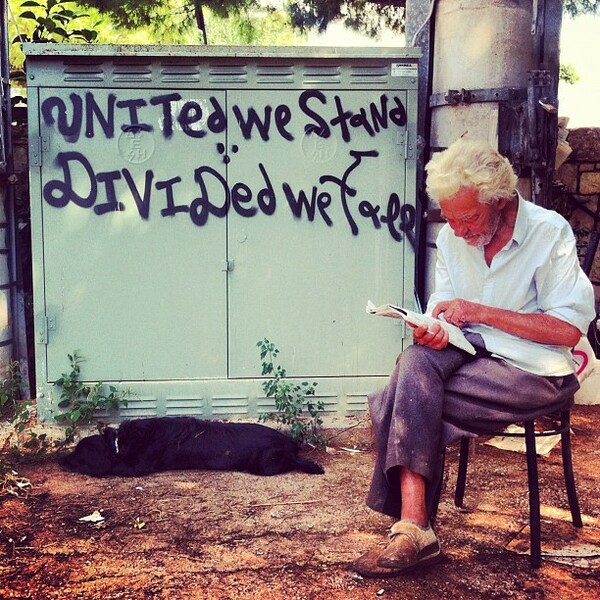 UNITed we STaNd
DIVIDed we Fall